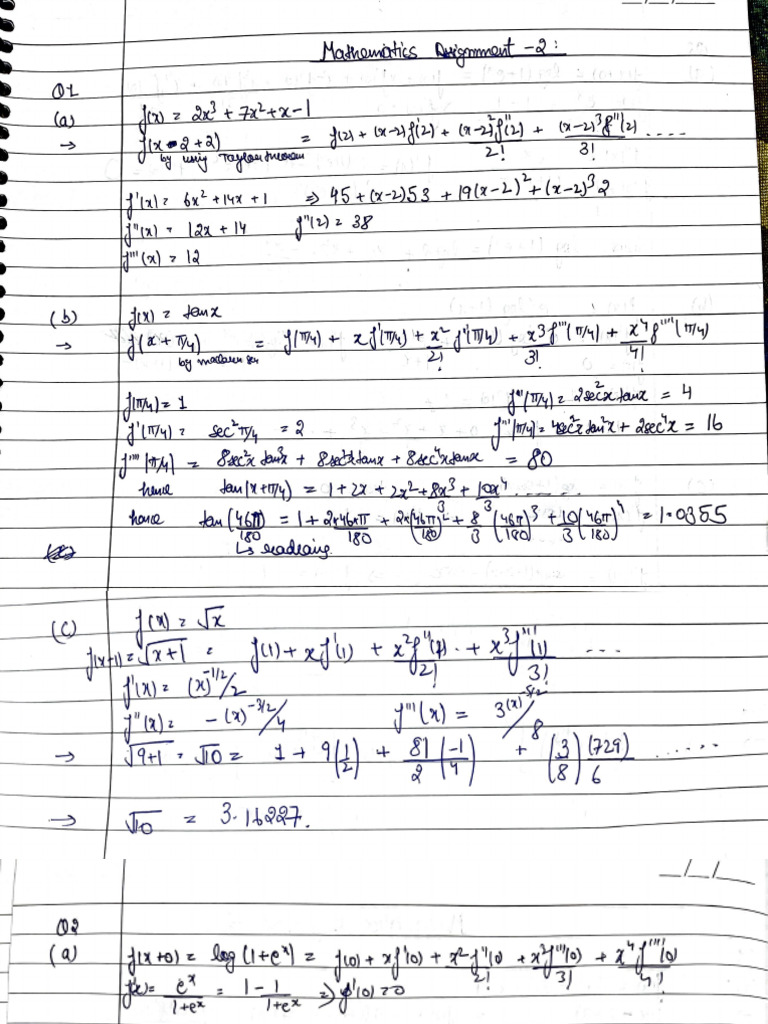 Mathematics Assignment - 2 :
Q1
(a) f(x) = 2x³ + 7x² + x - 1
→ f(x - 2 + 2) = f(2) + (x-2)f'(2) + (x-2)²f''(2)/2! + (x-2)³f'''(2)/3! ....
by using Taylor theorem
f'(x) = 6x² + 14x + 1 ⇒ 45 + (x-2)53 + 19(x-2)² + (x-2)³2
f''(x) = 12x + 14 f''(2) = 38
f'''(x) = 12
(b) f(x) = tanx
→ f(x + π/4) = f(π/4) + x f'(π/4) + x²/2! f''(π/4) + x³/3! f'''(π/4) + x⁴/4! f''''(π/4)
f(π/4) = 1 f''(π/4) = 2sec²x tanx = 4
f'(π/4) = sec²π/4 = 2 f'''(π/4) = 4sec²x tan²x + 2sec⁴x = 16
f''''(π/4) = 8sec²x tan³x + 8sec⁴x tanx + 8sec⁴x tanx = 80
hence tan(x + π/4) = 1 + 2x + 2x² + 8x³/3 + 10x⁴/3 .....
hence tan(46π/180) = 1 + 2×46×π/180 + 2×(46π/180)² + 8/3 (46π/180)³ + 10/3 (46π/180)⁴ = 1.0355
↳ readians
(c) f(x) = √x
f(x+1) = √x+1 = f(1) + x f'(1) + x²f''(1)/2! + x³f'''(1)/3! ...
f'(x) = (x)^-1/2/2
f''(x) = -(x)^-3/2/4 f'''(x) = 3(x)^-5/2/8
→ √9+1 = √10 = 1 + 9(1/2) + 81/2(-1/4) + (3/8)(729)/6 .....
→ √10 = 3.16227.
_/_/_
Q2
(a) f(x+0) = log(1+eˣ) = f(0) + xf'(0) + x²f''(0)/2! + x³f'''(0)/3! + x⁴f''''(0)/4!
f'(x) = eˣ/1+eˣ = 1 - 1/1+eˣ ⇒ f'(0) = 0